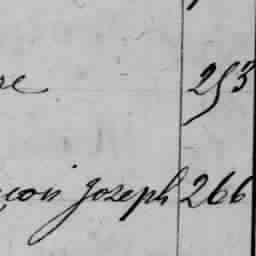 re 253
çois Joseph 266